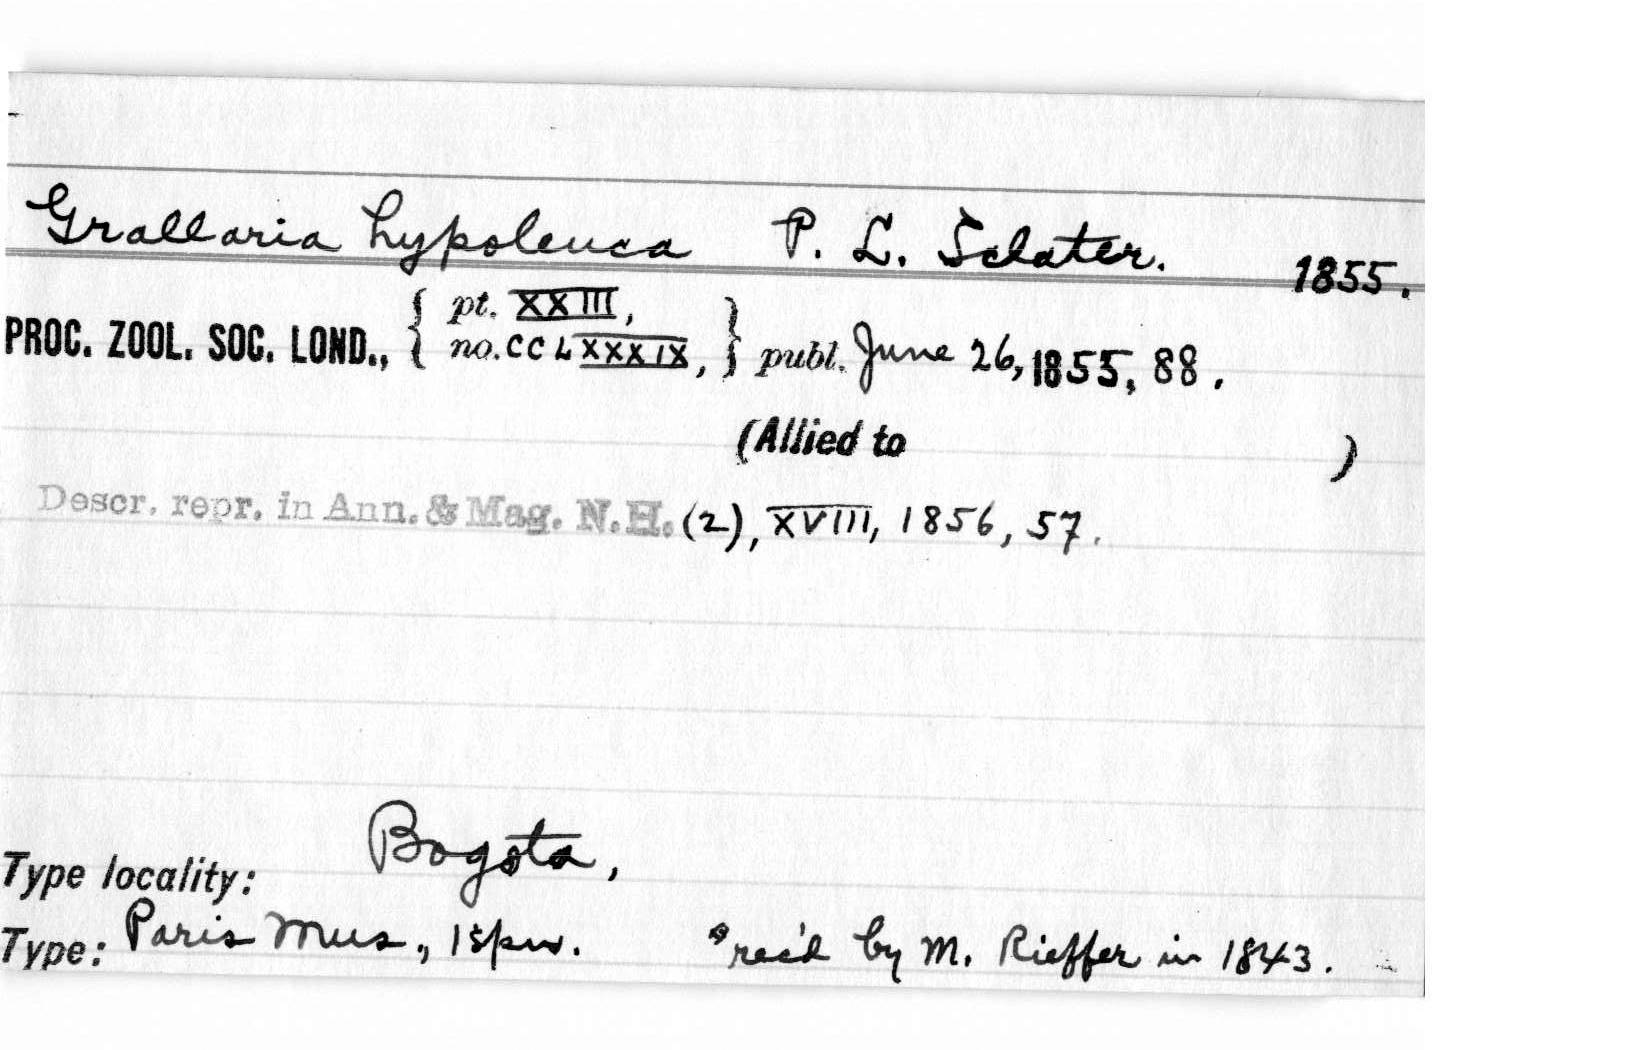 Grallaria hypoleuca P. L. Sclater. 1855.
PROC. ZOOL. SOC. LOND., { pt. XXIII, no. CCLXXXIX, } publ. June 26, 1855, 88.
(Allied to )
Descr. repr. in Ann. & Mag. N.H. (2), XVIII, 1856, 57.
Type locality: Bogota,
Type: Paris Mus., 1 spm. rec'd by M. Rieffer in 1843.